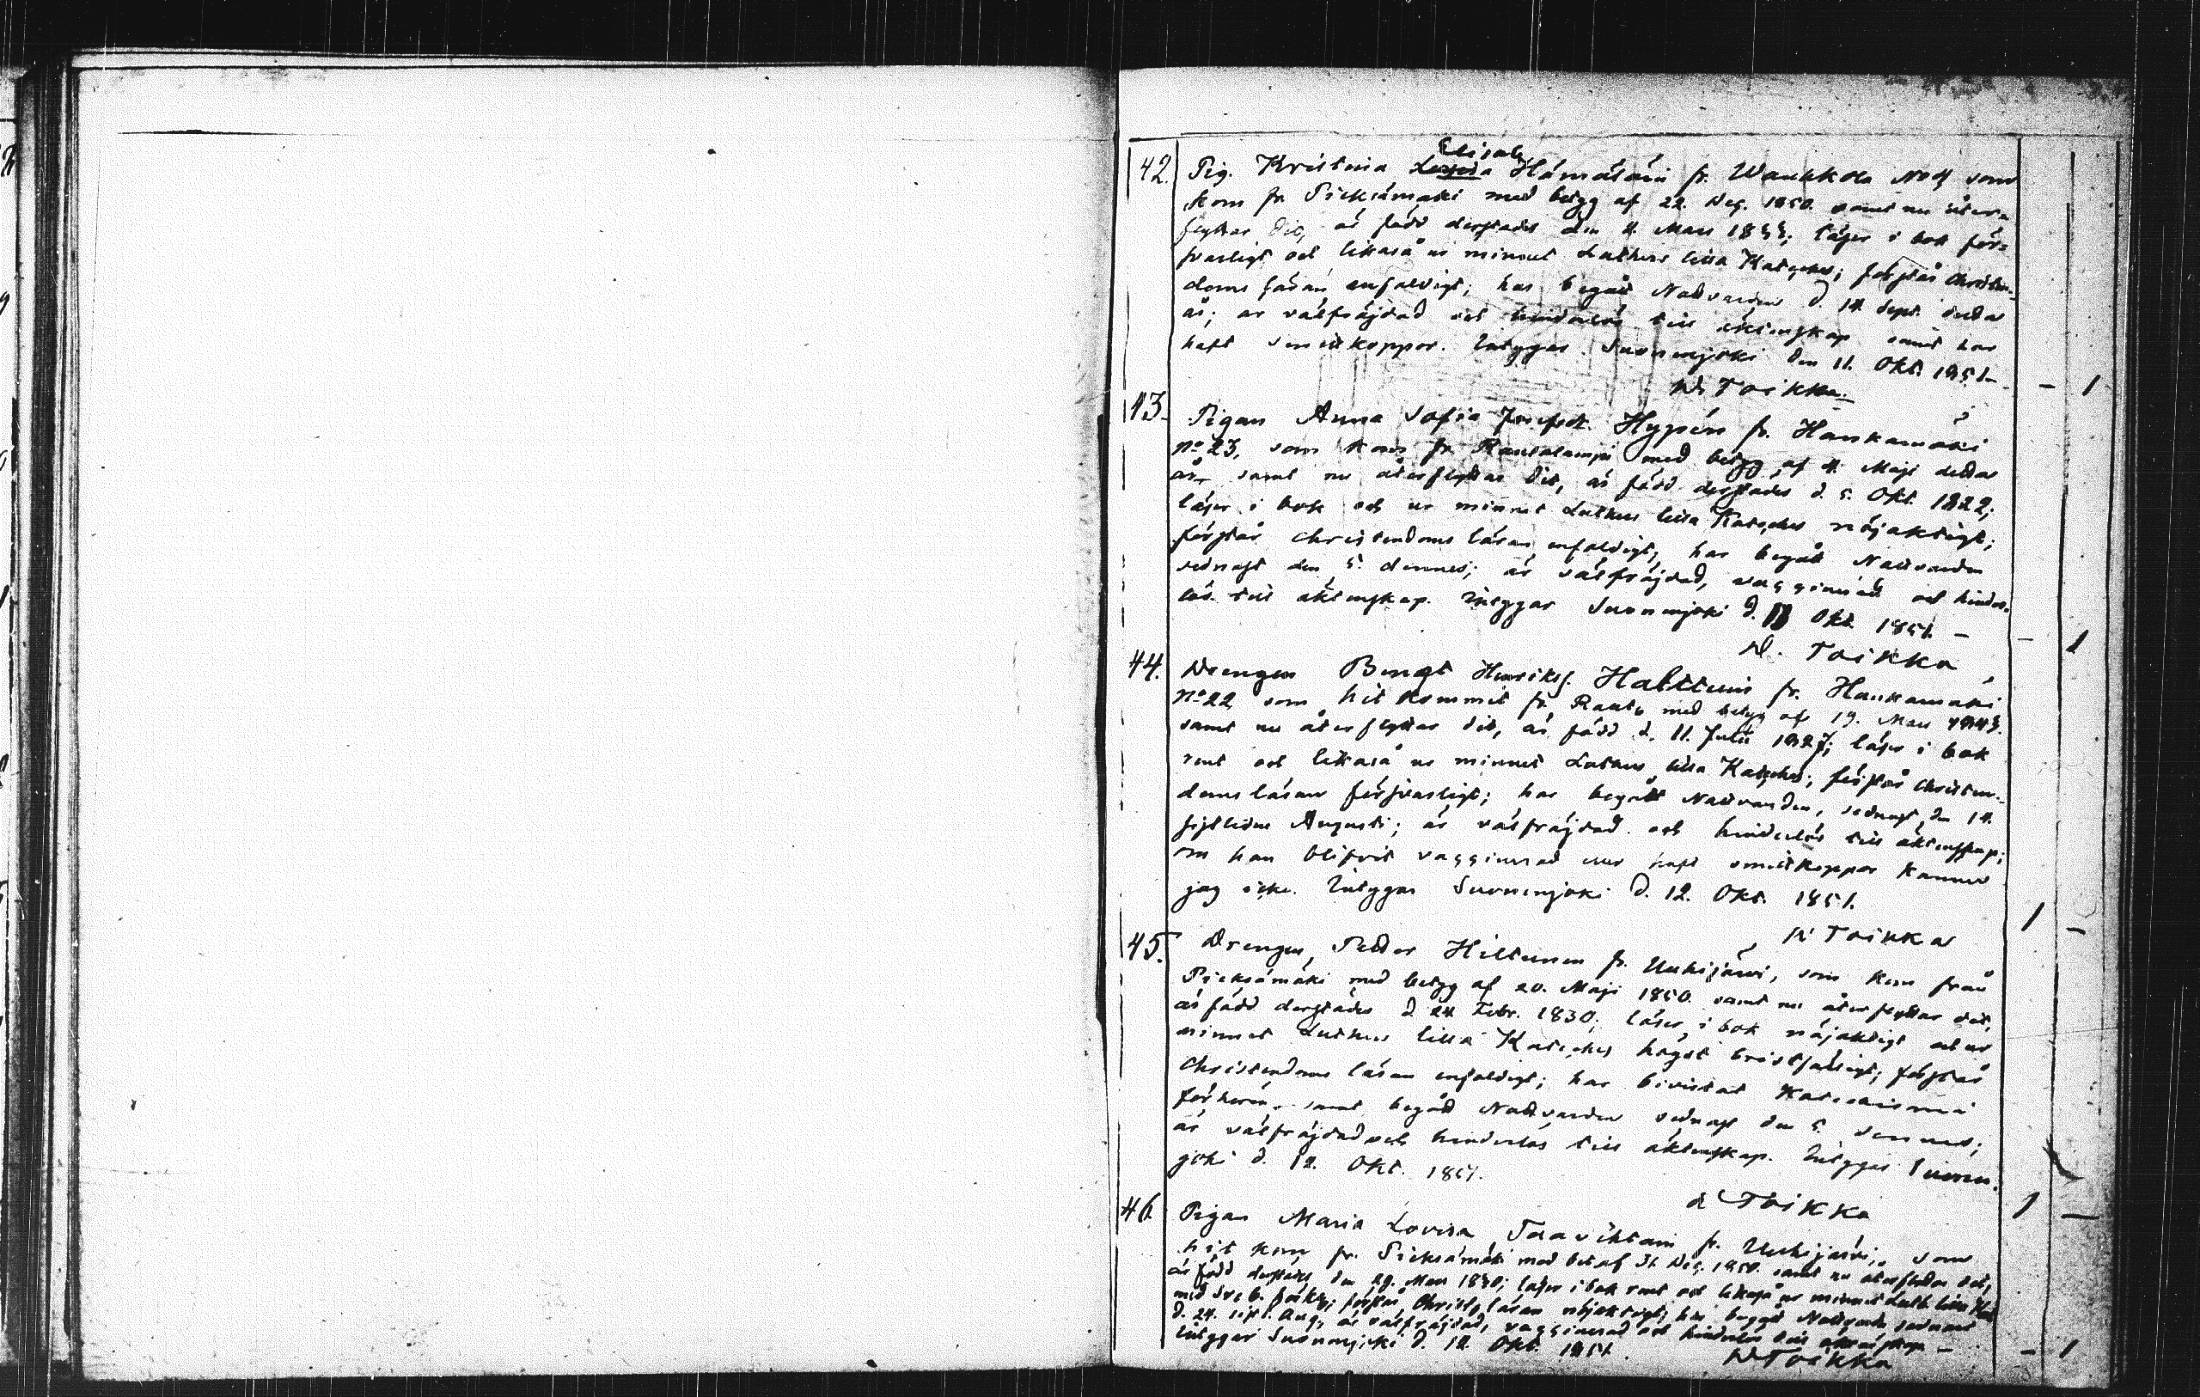 Elisab.
42. Pig. Kristina Lovisa Hämäläin fr. Wauhkola No 4 som
kom fr. Pieksämäki med betyg af 22. Dec. 1850. samt nu åter-
flyttar dit, är född derstädes den 4. Mars 1833; läser i bok för-
svarligt och likaså ur minnet Luthers lilla Kateches; förstår Christen-
doms läran enfaldigt; har begått Nattvarden d. 14. Sept. detta
år; är välfräjdad och hinderlös till äktenskap samt har
haft smittkoppor. Intygar Suonenjoki den 11. Okt. 1851.
Toikka. - 1
43. Pigan Anna Sofia Josefsdt. Hypén fr. Hankamäki
No 23, som kom fr. Rautalampi med betyg af 4. Maji detta
år, samt nu återflyttar dit, är född derstädes d. 5. Okt. 1822;
läser i bok och ur minnet Luthers lilla Kateches nöjaktigt;
förstår christendoms läran enfaldigt, har begått Nattvarden
sednast den 5. dennes; är välfräjdad, vaccinerad och hinder-
lös till äktenskap. Intygar Suonenjoki d. Okt. 1851. -
Toikka - 1
44. Drengen Bengt Henrikss. Halttuin fr. Hankamäki
No 22 som hit kommit fr. Raut. med betyg af 19. Mars
samt nu återflyttar dit, är född d. 11. Julii 1827; läser i bok
rent och likaså ur minnet Luthers lilla Kateches; förstår Christen-
doms läran försvarligt; har begått Nattvarden, sednast den 14.
sistlidne Augusti; är välfräjdad och hinderlös till äktenskap;
om han blifvit vaccinerad eller haft smittkoppor känner
jag icke. Intygar Suonenjoki d. 12. Okt. 1851.
Toikka 1 -
45. Drengen, Petter Hiltunen fr. Uuhijärvi, som kom från
Pieksämäki med betyg af 20. Maji 1850. samt nu återflyttar dit,
är född derstädes d 24 Febr. 1830; läser i bok nöjaktigt och ur
minnet Luthers lilla Kateches högst bristfälligt; förstår
Christendoms läran enfaldigt; har bivistat Katechismi
förhören, samt begått Nattvarden sednast den 5 dennes;
är välfräjdad och hinderlös till äktenskap. Intygar Suonen-
joki d. 12. Okt. 1851.
Toikka 1 -
46. Pigan Maria Lovisa Taavihtain fr. Uuhijärvi, som
hit kom fr. Pieksämäki med bet. af 31 Dec. 1850. samt nu återflyttar dit,
är född derstädes den 29. Mars 1830; läser i bok rent och likaså ur minnet Luth. lilla Kat.
med Sveb. förkl.; förstår Christ. läran nöjaktigt; har begått Nattvarden sednast
d. 24. sistl. Aug, är välfräjdad, vaccinerad och hinderlös till äktenskap -
Intygar Suonenjoki d. 12. Okt. 1851.
Toikka - 1